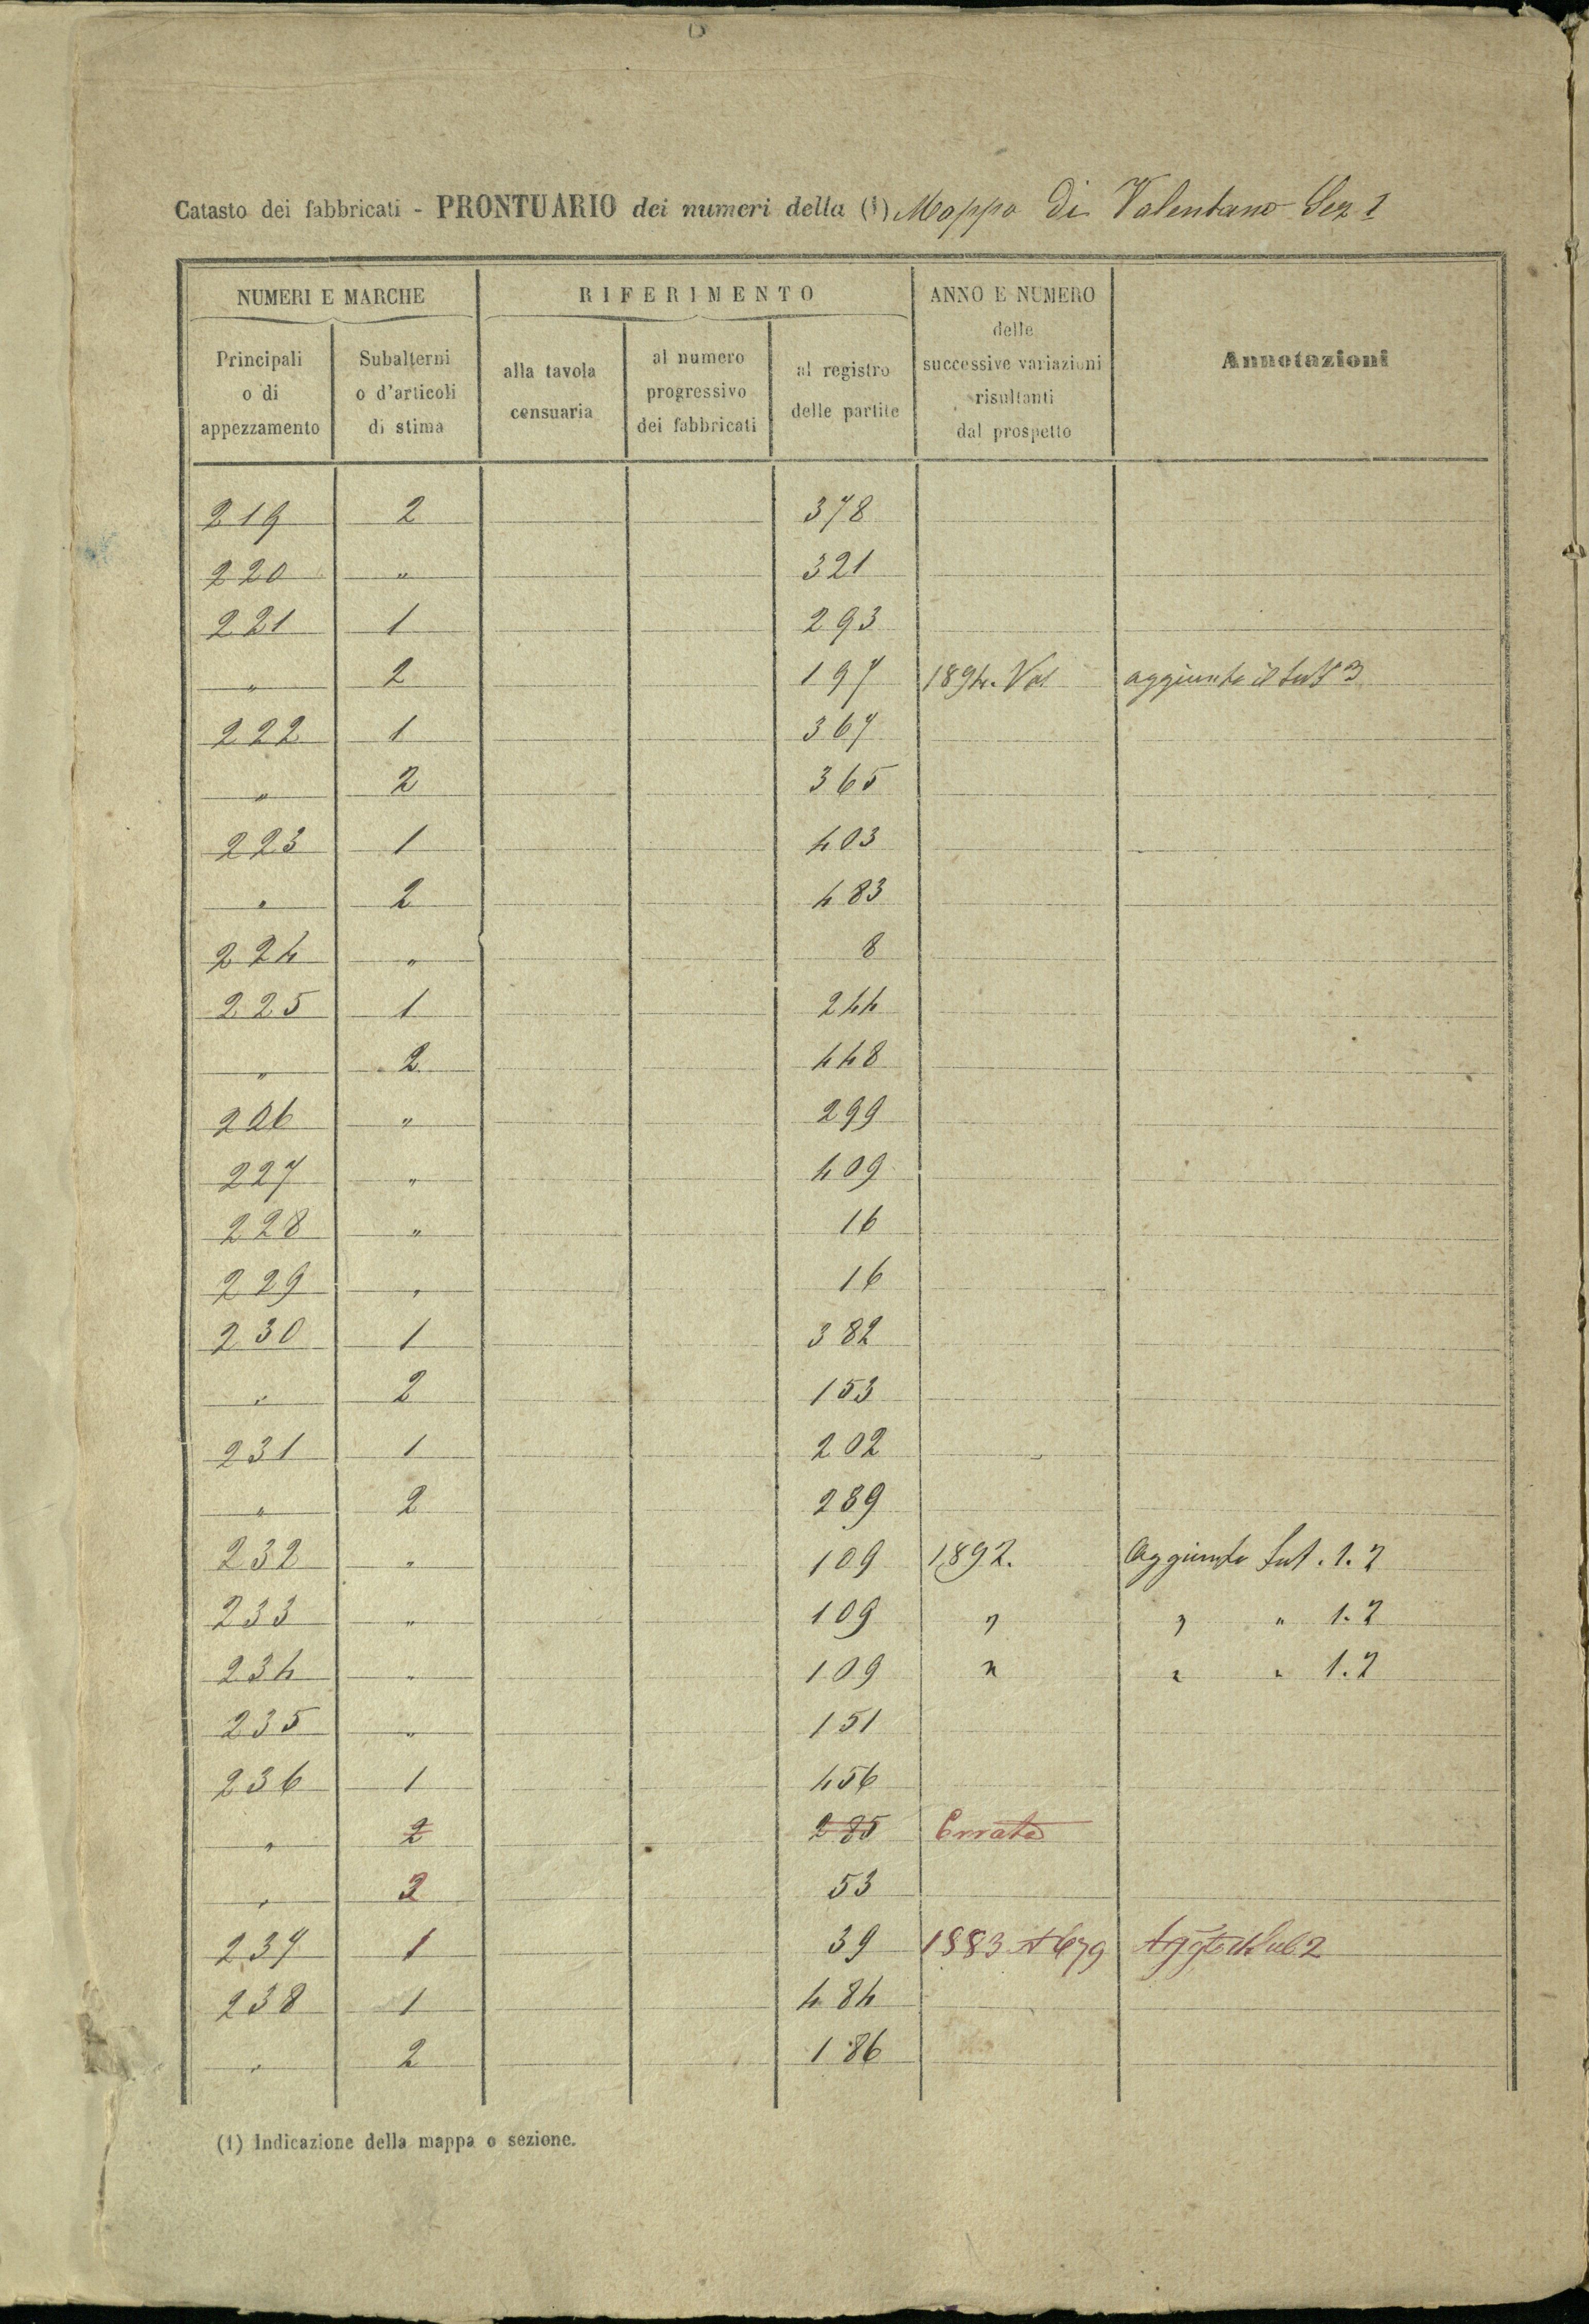 Catasto dei fabbricati - PRONTUARIO dei numeri della (1) Mappa di Valentano Sez 1
NUMERI E MARCHE
RIFERIMENTO
ANNO E NUMERO
delle
successive variazioni
risultanti
dal prospetto
Annotazioni
Principali
o di
appezzamento
Subalterni
o d'articoli
di stima
alla tavola
censuaria
al numero
progressivo
dei fabbricati
al registro
delle partite
219 2 378
220 " 321
221 1 293
" 2 197 1894. Vol aggiunto il sub 3
222 1 367
" 2 365
223 1 403
" 2 483
224 " 8
225 1 244
" 2 448
226 " 299
227 " 409
228 " 16
229 " 16
230 1 382
" 2 153
231 1 202
" 2 239
232 " 109 1892. Aggiunto Sub. 1. 2
233 " 109 " " " 1. 2
234 " 109 " " " 1. 2
235 " 151
236 1 456
" 2 285 Errata
" 3 53
237 1 39 1883 Agg.to il Sub 2
238 1 484
" 2 186
(1) Indicazione della mappa o sezione.